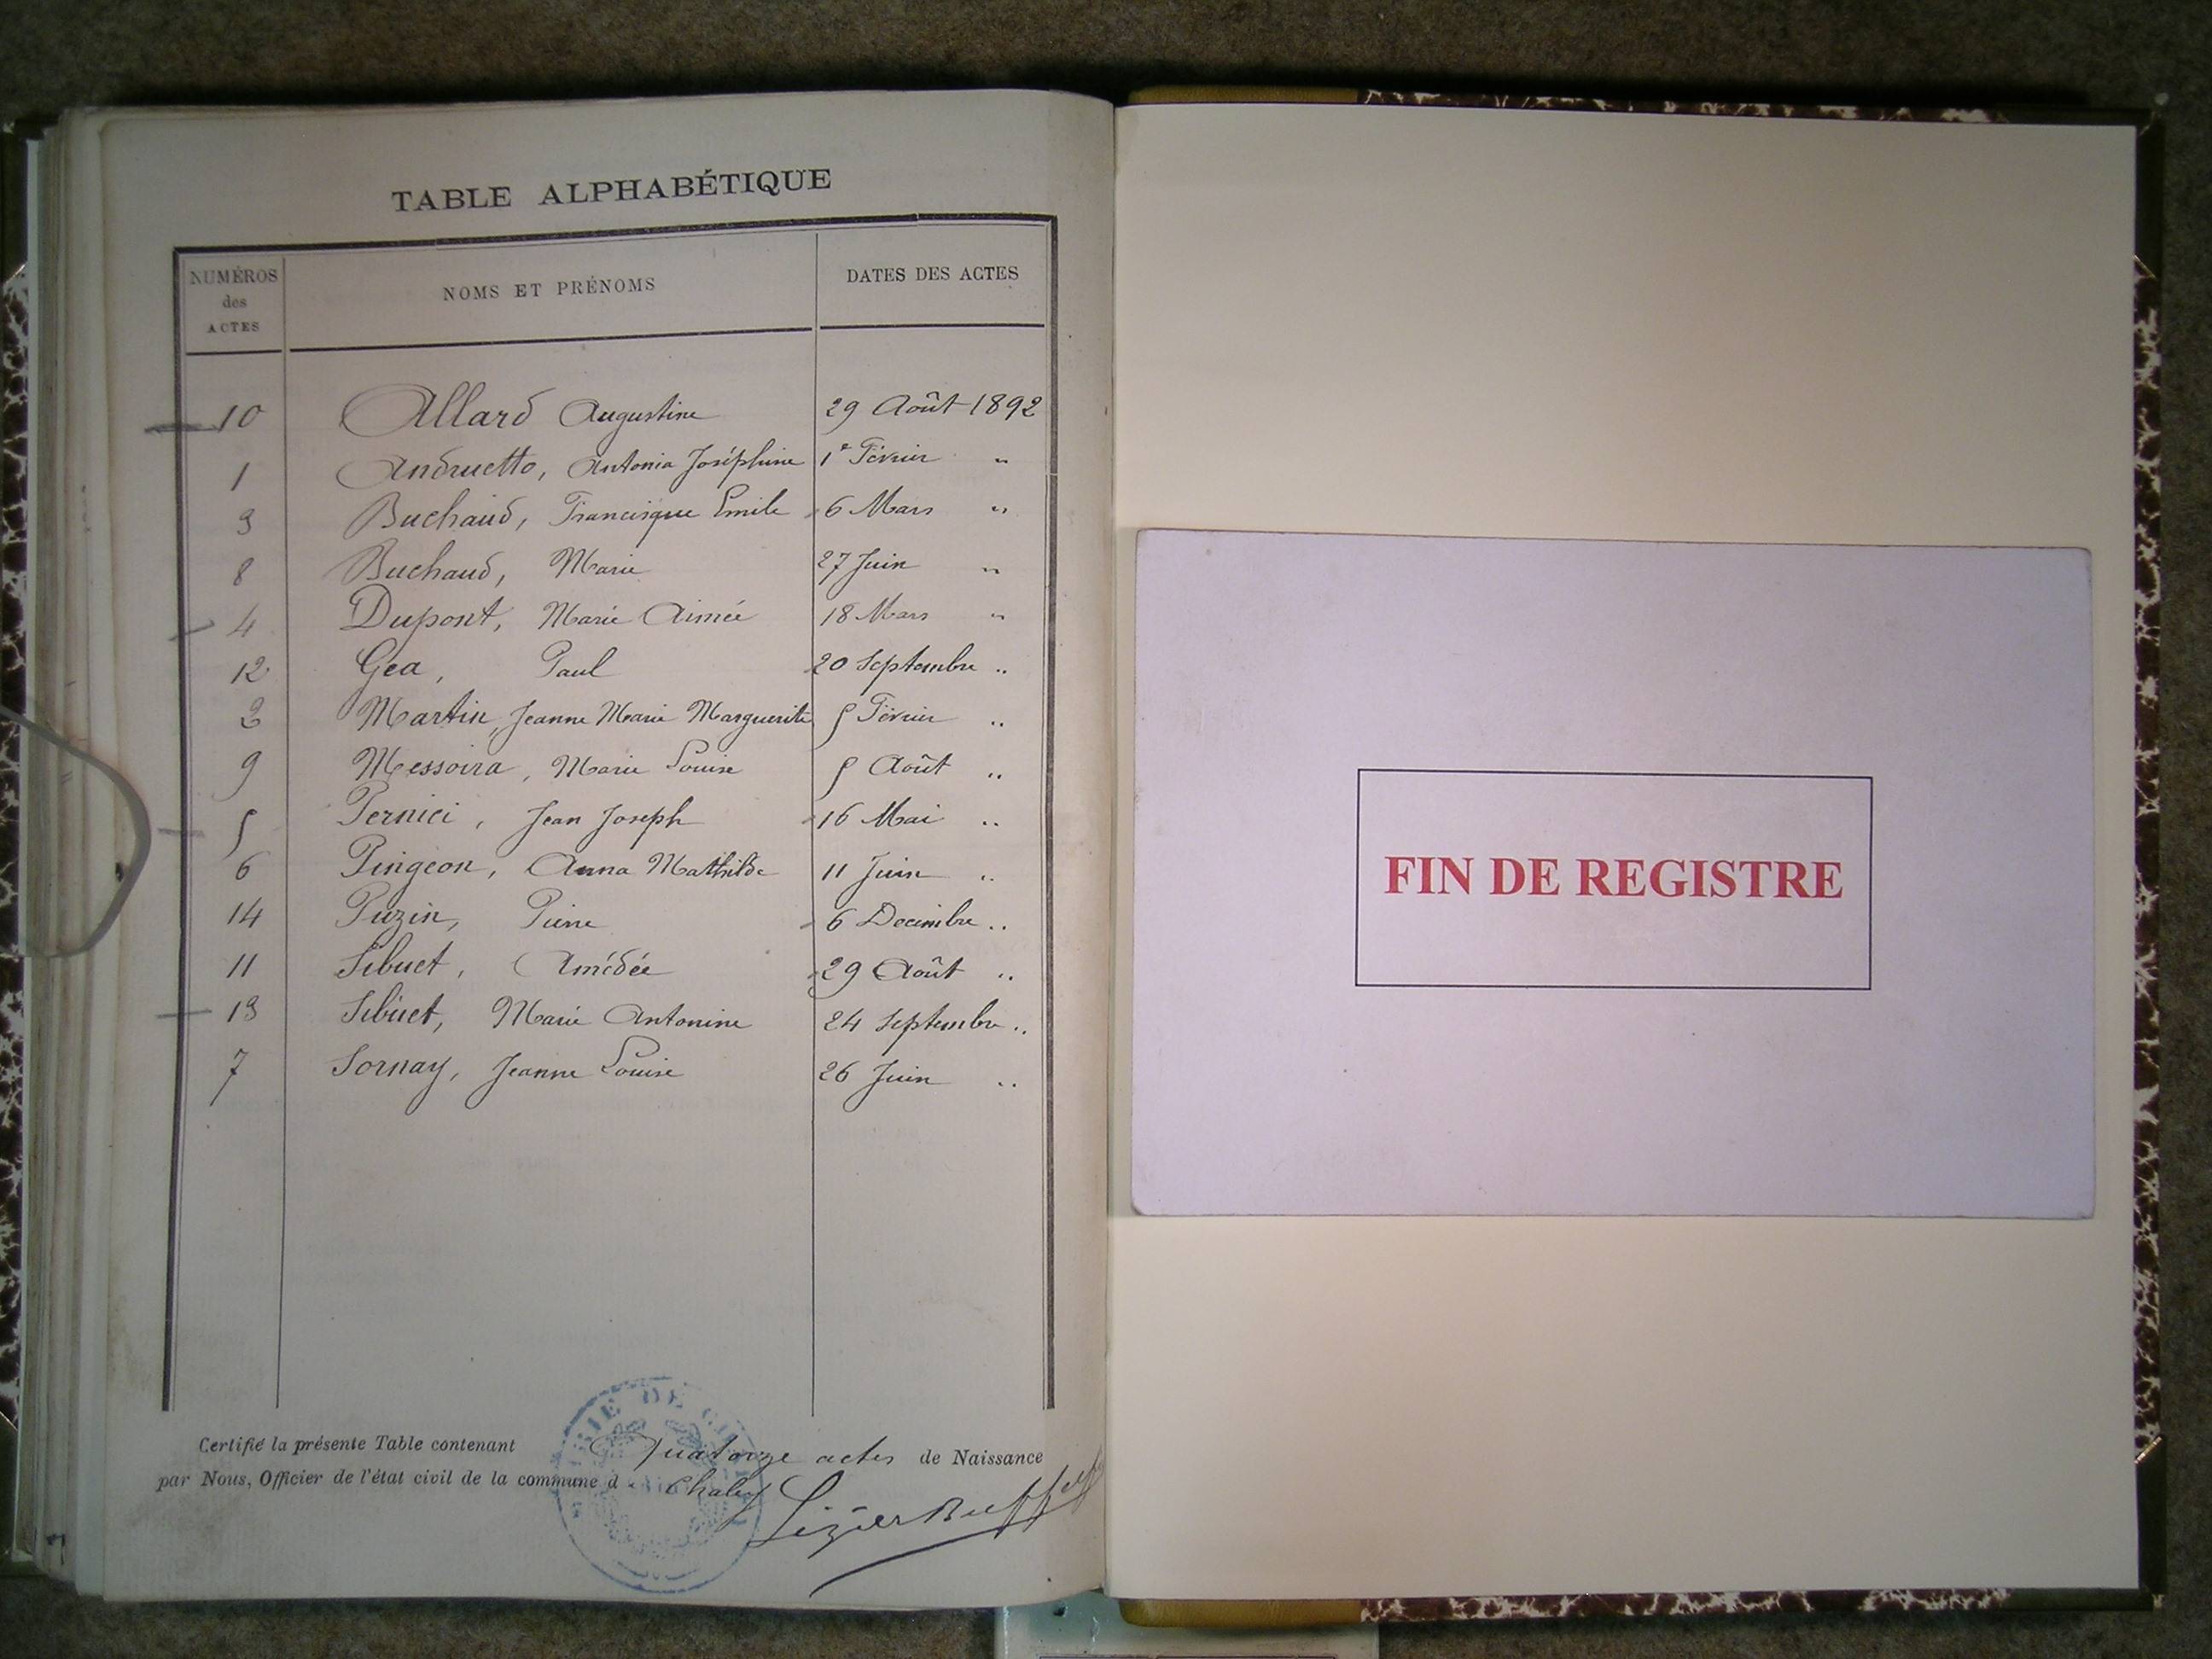 TABLE ALPHABÉTIQUE
NUMÉROS des ACTES NOMS ET PRÉNOMS DATES DES ACTES
10 Allard Augustine 29 Août 1892
1 Andruetto, Antonia Joséphine 1er Février "
3 Buchaud, Francisque Emile 6 Mars "
8 Buchaud, Marie 27 Juin "
4 Dupont, Marie Aimée 18 Mars "
12 Gea, Paul 20 Septembre "
2 Martin, Jeanne Marie Marguerite 5 Février "
9 Messoira, Marie Louise 5 Août "
5 Pernici, Jean Joseph 16 Mai "
6 Pingeon, Anna Mathilde 11 Juin "
14 Puzin, Pierre 6 Decembre "
11 Sibuet, Amédée 29 Août "
13 Sibuet, Marie Antonine 24 Septembre "
7 Sornay, Jeanne Louise 26 Juin "
Certifié la présente Table contenant Quatorze actes de Naissance
par Nous, Officier de l'état civil de la commune d Chaley
FIN DE REGISTRE